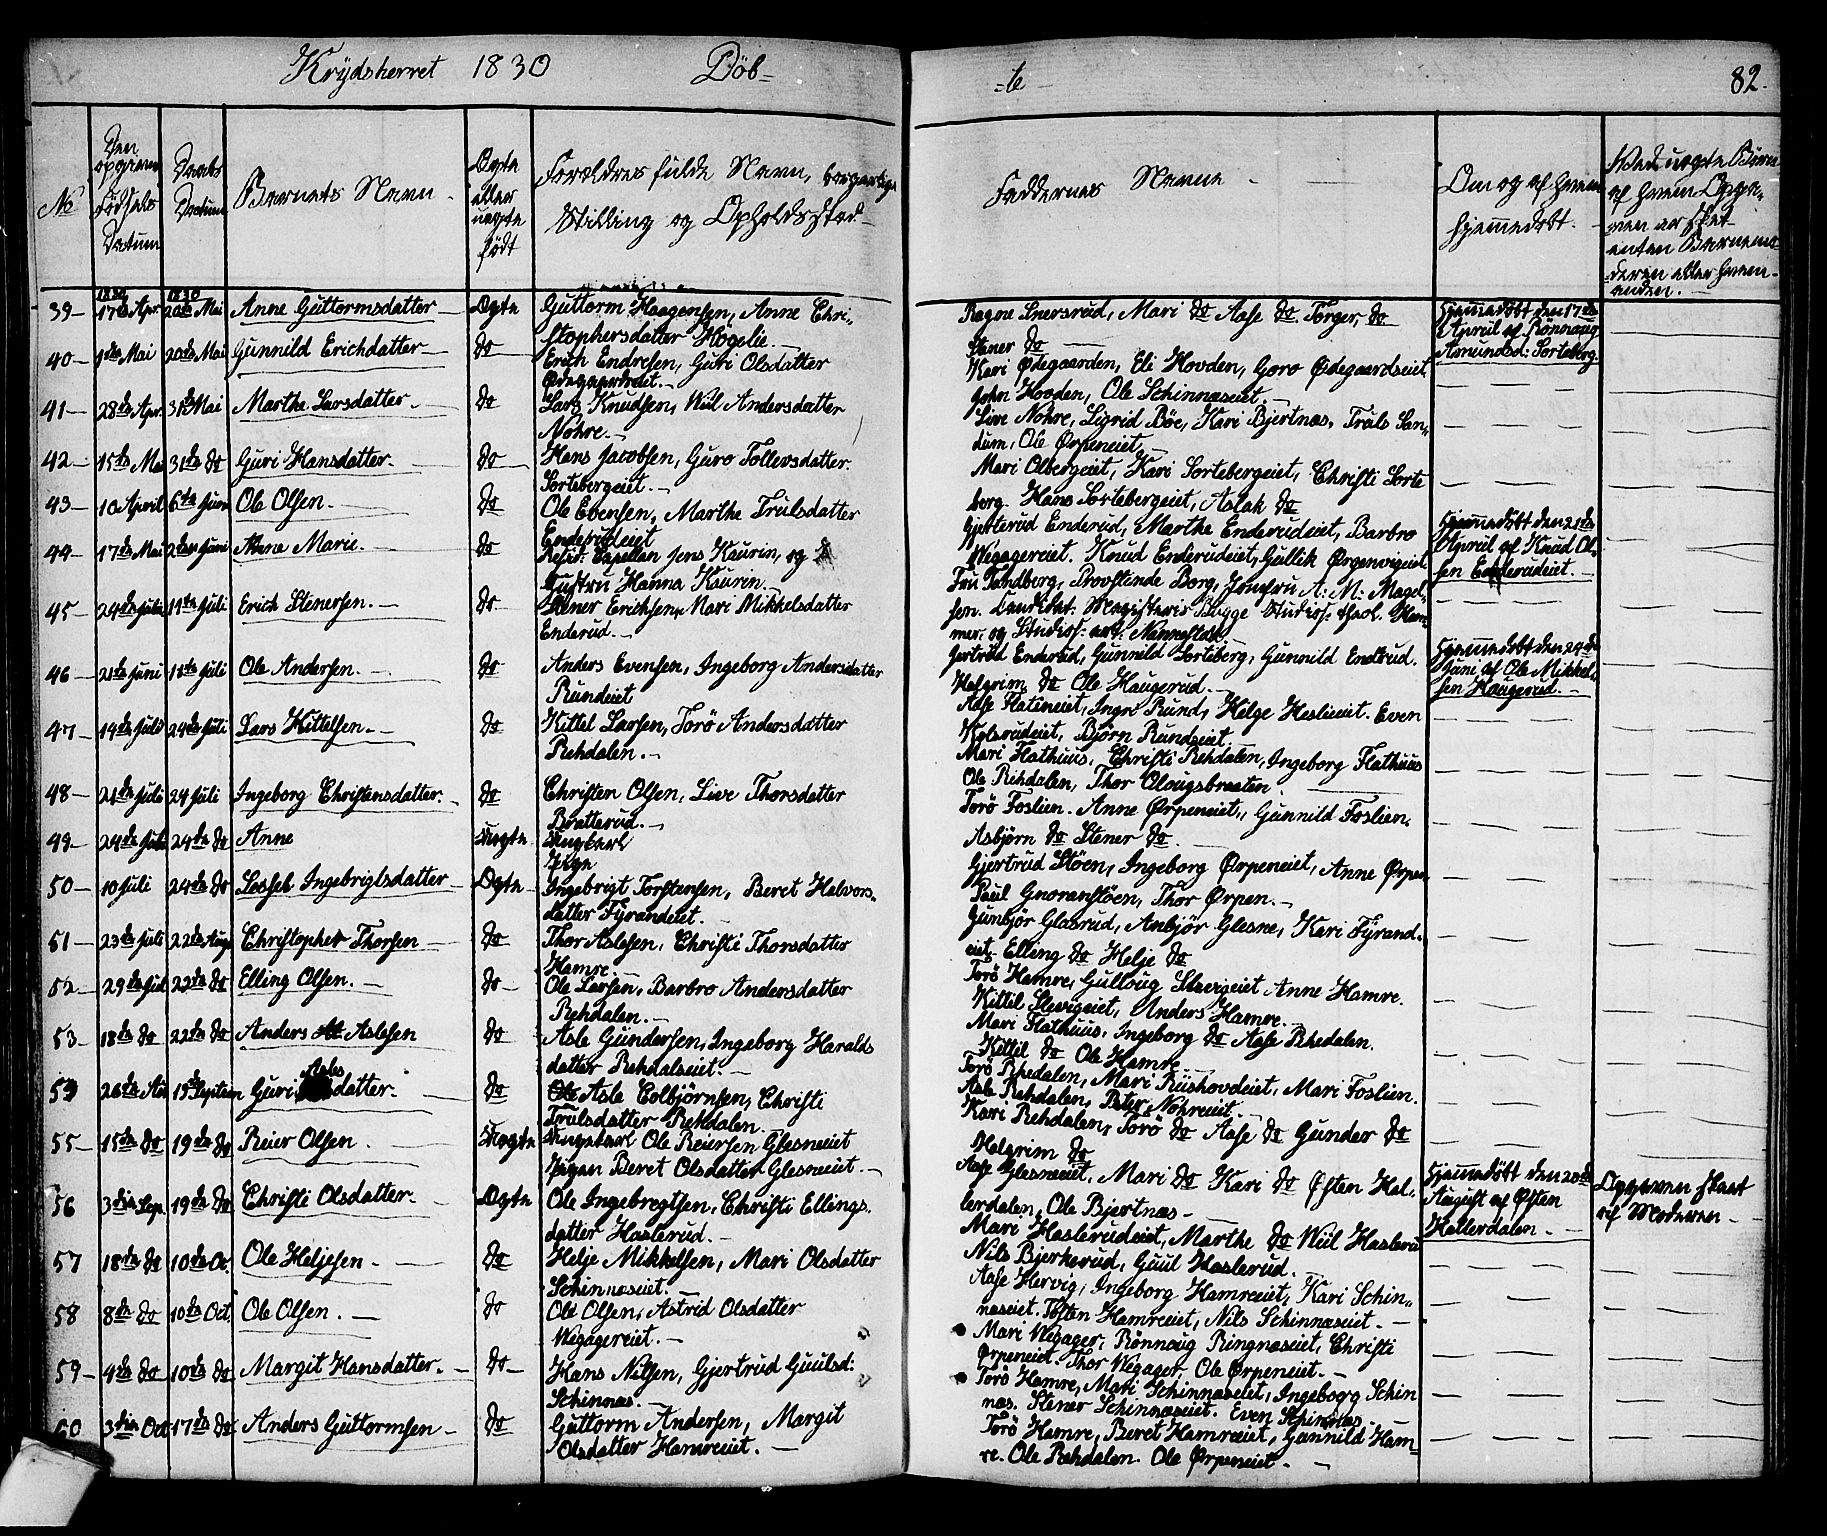 Krydsherret 1830 Døb-
-te
82.
No
Den opgivne Fødsels Datum
Daabs Datum
Barnets Navn.
Ægte eller uægte født
Forældres fulde Navn, borgerlige Stilling og Opholdssted
Faddernes Navne
Om og af hvem hjemmedøbt.
Ved uægte Børn af hvem Opgivelsen er skeet enten Barnemoderen eller hvem anden.
1830 1830
39- 17de Apr. 20de Mai Anne Guttormsdatter Ægte Guttorm Haagensen, Anne Chri-
stophersdatter Kögelie.
Ragne Snersrud, Mari do Aase do. Torger, do
Stener do
Hjemmedöbt den 17de
April af Rönnaug
Asmundsd: Sorteberg.
40- 1ste Mai 20de Mai Gunnild Erichdatter do Erich Endresen, Guri Olsdatter
Ødegaardseiet.
Kari Ødegaarden, Eli Hovden, Goro Ødegaardseiet
John Hovden, Ole Schinnaseiet.
41- 28de Apr. 31te Mai Marthe Larsdatter do Lars Knudsen, Niil Andersdatter
Nohre.
Live Nohre, Sigrid Böe, Kari Bjertnæs, Truls San-
dum, Ole Ørpeneiet
42- 15de Mai 31te do Guri Hansdatter. do Hans Jacobsen, Guro Tollevsdatter.
Sortebergeiet.
Mari Olbergeiet, Kari Sortebergeiet, Christi Sorte
berg. Hans Sortebergeiet, Aslak do
43- 10 April 6te Juni Ole Olsen. do Ole Evensen, Marthe Trulsdatter
Enderudeiet
Gjertrud Enderud, Marthe Enderudeiet, Barbro
Wegagereiet. Knud Enderudeiet, Gullik Ørgenvigeiet
Hjemmedöbt den 21de
April af Knud Ol-
sen Enderudeiet.
44- 17de Mai 2den Juni Anne Marie. do Resid: Capellan Jens Kaurin, og
Hustru Hanna Kaurin.
Fru Tandberg, Provstinde Borg, Jomfru A: M: Magel-
sen. Candidat. Magisteris Bugge Studios: theol. Ham-
mer. og Studios: art:
45- 24de Juni 11te Juli Erich Stenersen. do Stener Erichsen, Mari Mikkelsdatter
Enderud.
Gjertrud Enderud, Gunnild Sorteberg, Gunnild Endrud.
Helgrim do Ole Haugerud.
Hjemmedöbt den 24de
Juni af Ole Mikkel-
sen Haugerud.
46- 21de Juni 11te Juli Ole Andersen. do Anders Evensen, Ingeborg Andersdatter
Rundeiet
Aase Flatineiet, Ingr Rund, Helge Heslieiet. Even
Kolsrudeiet, Björn Rundseiet
47- 19de Juli 24de Juli Lars Kittelsen. do Kittel Larsen, Torö Andersdatter
Rehdalen.
Mari Flathuus. Christi Rehdalen, Ingeborg Flathuus
Ole Rehdalen, Thor Olougsbraaten
48- 21de Juli 24 Juli Ingeborg Christensdatter. do Christen Olsen, Live Thorsdatter
Bratterud.
Torö Foslien. Anne Ørpeneiet, Gunnild Foslien.
Asbjörn do Stener do
49- 24de Juli 24de do Anne Uægte Ungkarl
Pige
Gjertrud Stöen, Ingeborg Ørpeneiet, Anne Ørpen
Paul Gnoranstöen, Thor Ørpen.
50- 10 Juli 24de do Lessel Ingebrigtsdatter Ægte Ingebrigt Torstensen, Beret Halvors-
datter Fyrandeiet.
Gunbjör Glasrud, Anbjör Glesne, Kari Fyrand-
eiet. Elling do Helje do
51- 23de Juli 22de Aug Christopher Thorsen do Thor Aslesen, Christi Thorsdatter
Hamre.
Torö Hamre, Gulloug Stevrgeiet Anne Hamre.
Kittil Stevrgeiet, Anders Hamre.
52- 29de Juli 22de do Elling Olsen. do Ole Larsen, Barbro Andersdatter
Rehdalen.
Mari Flathuus, Ingeborg do Aase Rhedalen.
Kittil do Ole Hamre
53- 18de do 22de do Anders Aslesen do Asle Gundersen, Ingeborg Haralds
datter Rehdalseiet.
Torö Rhedalen, Mari Riishovdeiet, Mari Foslien.
Asle Rehdalen, Peter Nohreeiet.
54 26de Au 19de Septem Guri Aslesdatter. do Asle Colbjörnsen, Christi
Trulsdatter Rehdalen.
Kari Rehdalen, Torö do Aase do Gunder do
Helgrim do
55- 15de do 19de do Reier Olsen Uægte Ungkarl Ole Reiersen Glesneeiet
Pigen Beret Olsdatter Glesneeiet.
Aase Glesneeiet, Mari do Kari do Østen Hal-
lerdalen, Ole Bjertnæs
Hjemmedöbt den 20de
August af Østen
Hallerdalen.
Opgivelsen skeet
af Moderen
56 3die Sep. 19de do Christi Olsdatter. Ægte Ole Ingebregtsen, Christi Ellings-
datter Haslerud.
Mari Haslerudeiet, Marthe do Niil Haslerud
Nils Bjerkerud, Guul Haslerud.
57 18de do 10de Oc. Ole Heljesen. do Helje Mikkelsen, Mari Olsdatter
Schinnaseiet.
Aase Hervig, Ingeborg Hamreeiet, Kari Schin-
naseiet. Tosten Hamreeiet, Nils Schinnaseiet.
58 8de do 10de Oct. Ole Olsen. do Ole Olsen, Astrid Olsdatter
Wegagereiet.
Mari Wegager, Rönnaug Ringnæseiet, Christi
Ørpeneiet. Thor Wegager, Ole Ørpeneiet.
59- 4de do 10de do Margit Hansdatter. do Hans Nilsen, Gjertrud Guulsd:
Schinnæs.
Torö Hamre, Mari Schinnaseiet, Ingeborg Schin
næs. Stener Schinnaseiet. Even Schinnæs
60 3die Oct 17de do Anders Guttormsen do Guttorm Andersen, Margit
Olsdatter Hamreeiet.
Torö Hamre, Beret Hamreeiet, Gunnild Ham-
re. Ole Rehdalen. Ole Ørpeneiet